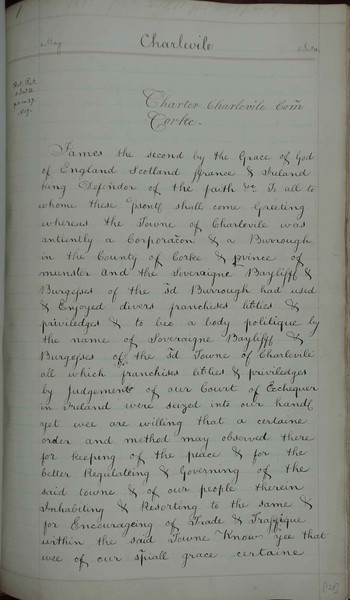 May
Charlevile
Charter Charlevile Com
Corke.
James the second by the Grace of God
of England Scotland ffrance & Ireland
king Defendor of the faith &c To all to
whome these psents shall come Greeting
whereas the Towne of Charlevile was
antiently a Corporacon & a Burrough
in the County of Corke & province of
munster And the Soveraigne Bayliffs &
Burgesses of the sd Burrough had used
& Enjoyed divers franchises lities &
priviledges & to bee a body politique by
the name of Soveraigne Bayliffs &
Burgesses of the sd Towne of Charlevile
all which franchises lities & priviledges
by Judgement of our Court of Exchequer
in Ireland were seized into our hands
yet wee are willing that a certaine
order and method may observed there
for keeping of the peace & for the
better Regulateing & Governing of the
said towne & of our people therein
Inhabiting & Resorting to the same &
for Encourageing of Trade & Traffique
within the said Towne Know yee that
wee of our spiall grace certaine